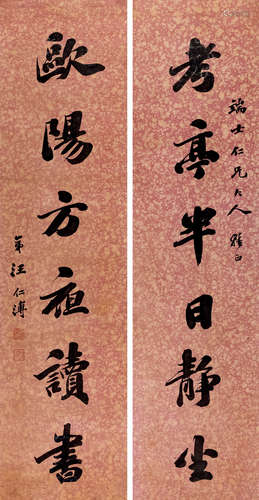 考亭半日靜坐
端士仁兄大人雅正
歐陽方夜讀書
弟汪仁溥